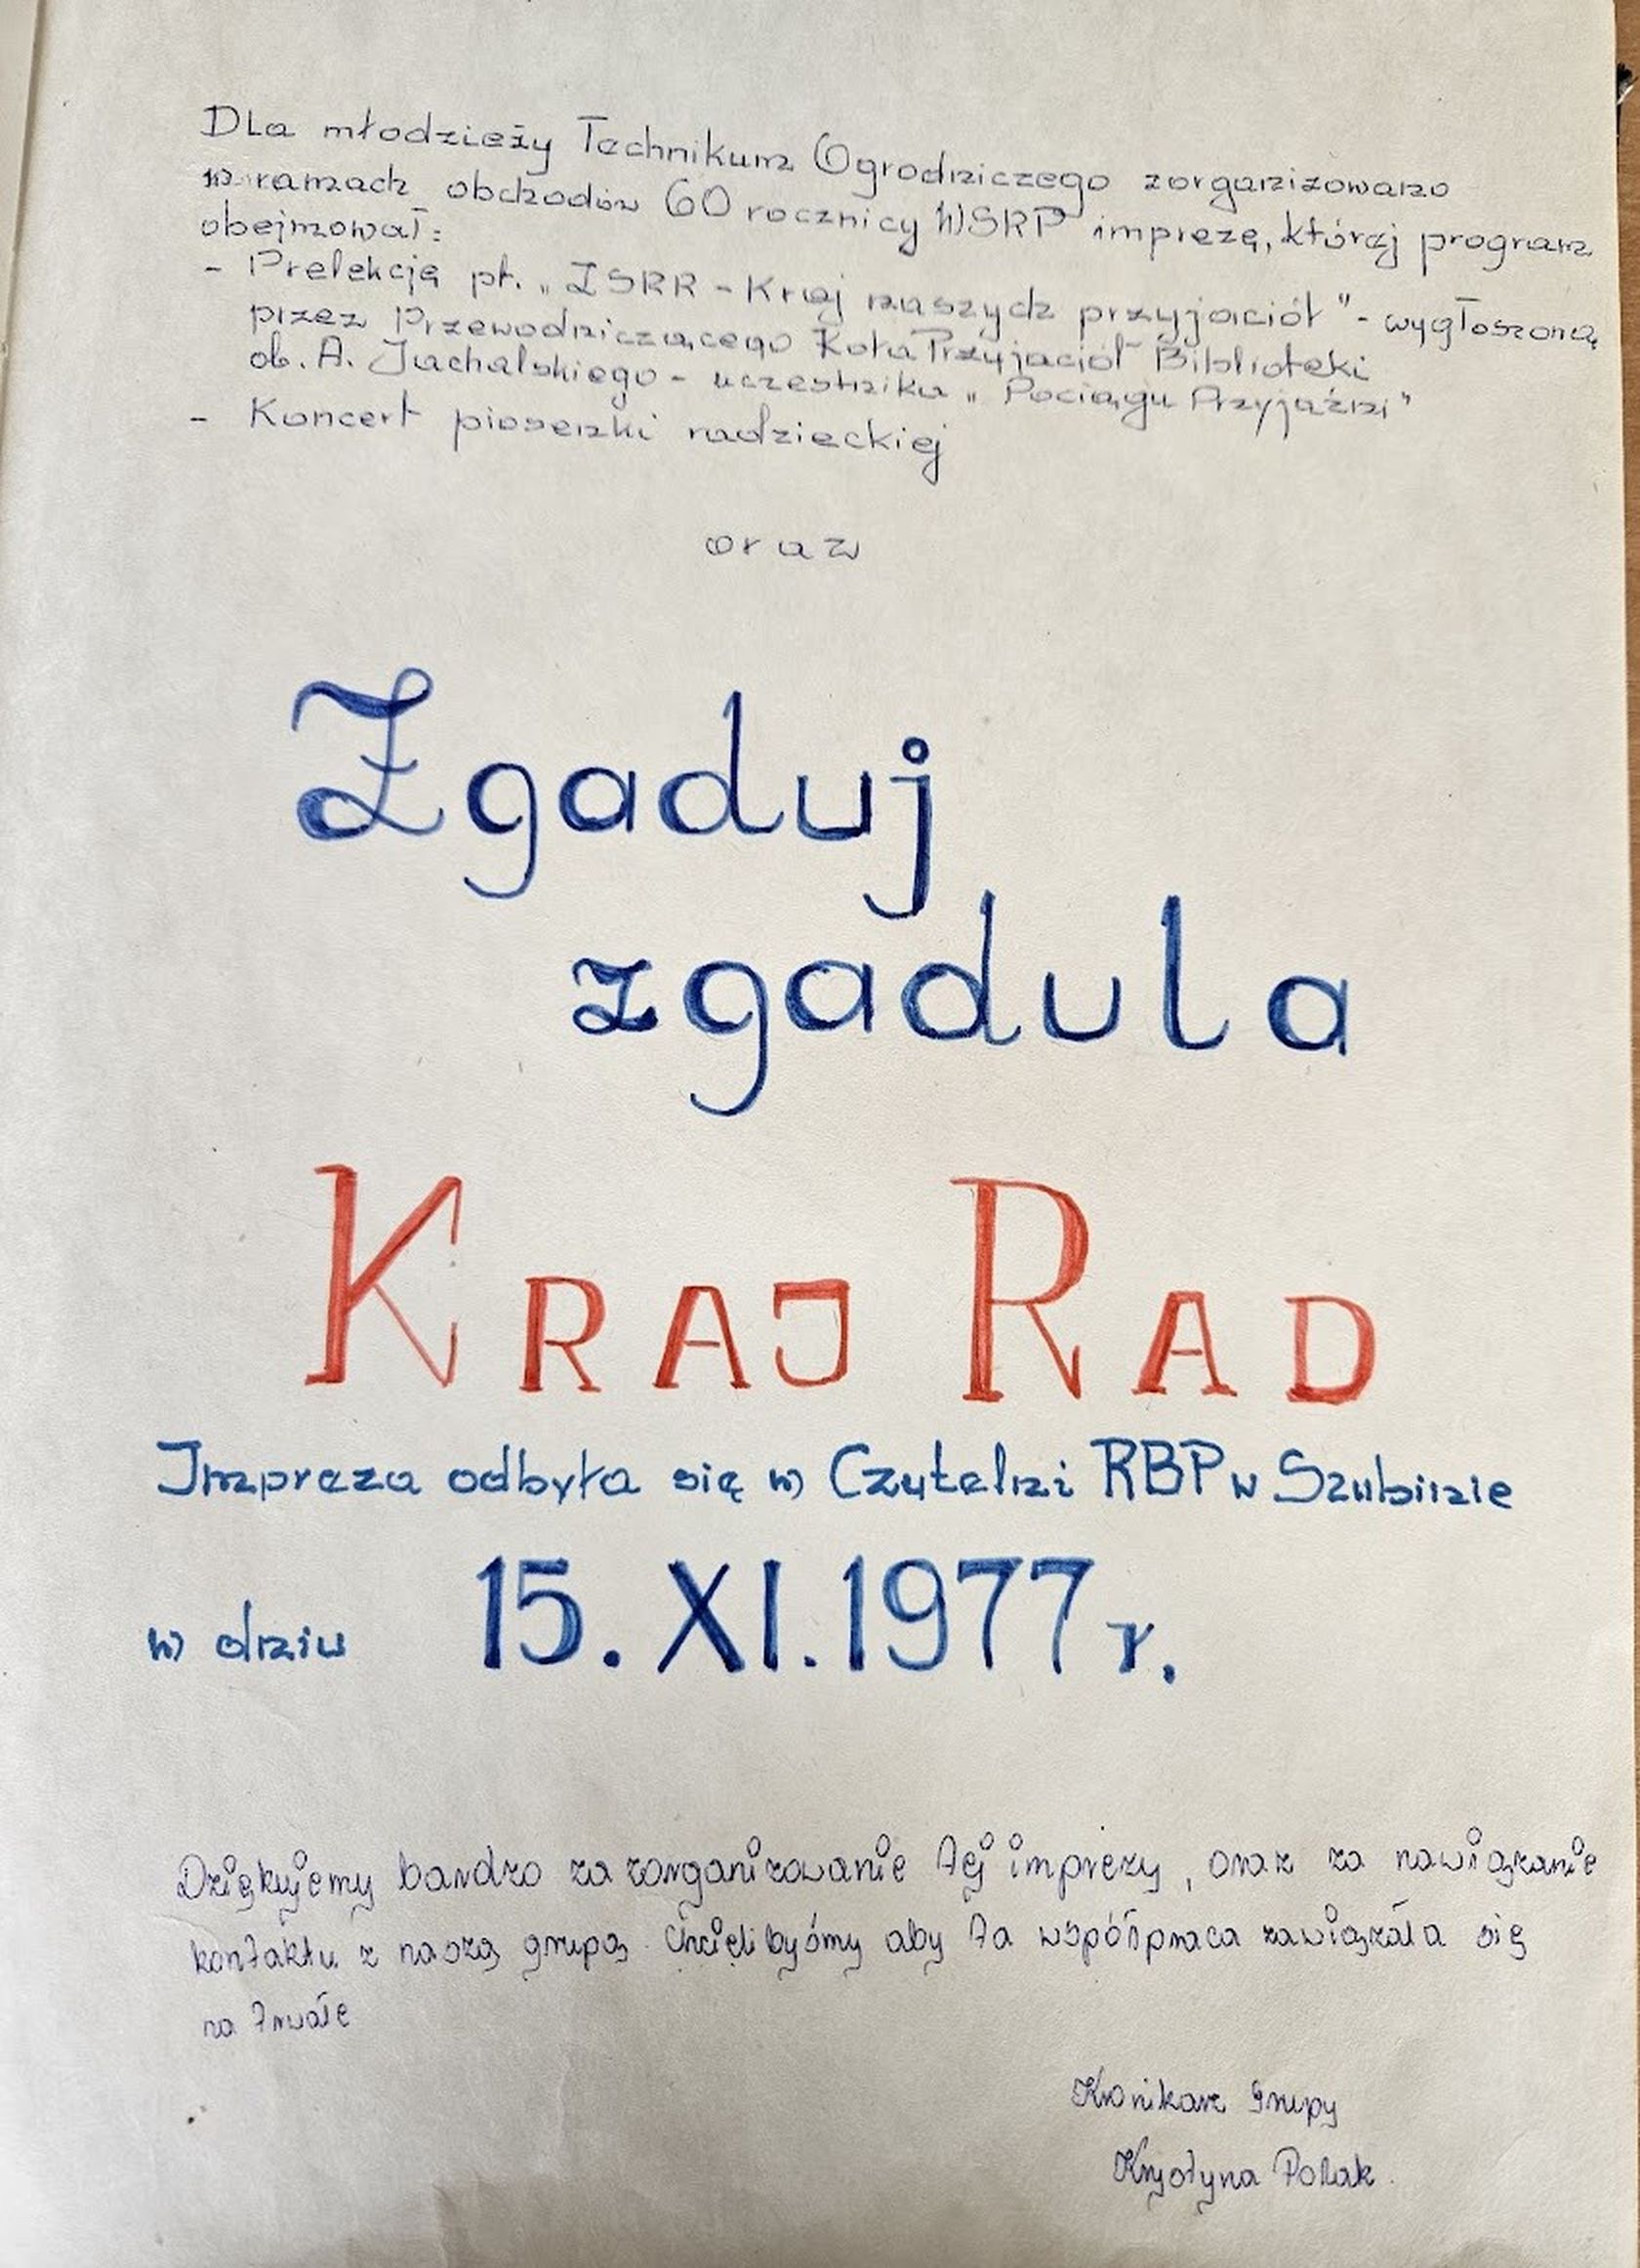 Dla młodzieży Technikum Ogrodniczego zorganizowano
w ramach obchodów 60 rocznicy WSRP imprezę, której program
obejmował:
- Prelekcję pt. „ZSRR - Kraj naszych przyjaciół" - wygłoszoną
przez Przewodniczącego Koła Przyjaciół Biblioteki
ob. A. Jachalskiego - uczestnika „Pociągu Przyjaźni"
- Koncert piosenki radzieckiej
oraz
Zgaduj
zgadula
KRAJ RAD
Impreza odbyła się w Czytelni RBP w Szubinie
w dniu 15. XI. 1977 r.
Dziękujemy bardzo za zorganizowanie tej imprezy, oraz za nawiązanie
kontaktu z naszą grupą. Chcielibyśmy aby ta współpraca zawiązała się
na trwałe
Kronikarz Grupy
Krystyna Polak.